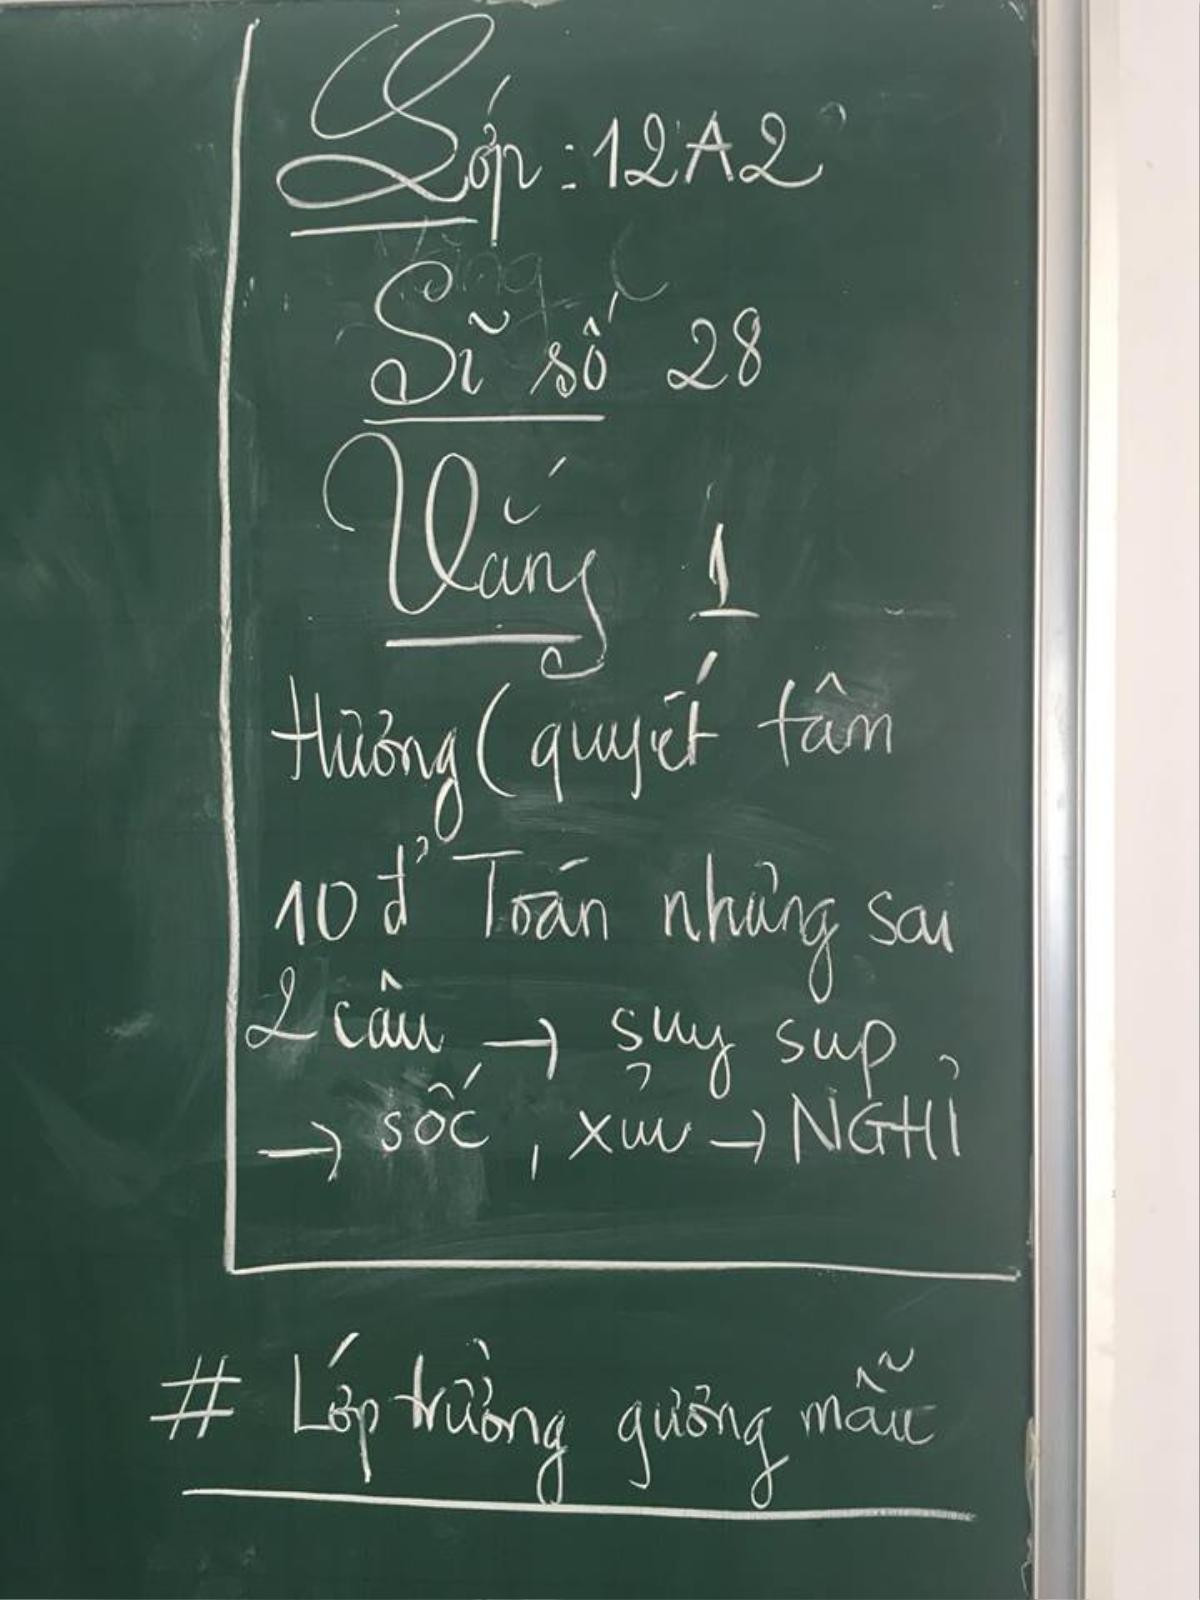 Lớp : 12A2
Sĩ số 28
Vắng 1
Hương (quyết tâm
10 đ' Toán nhưng sai
2 câu → suy sụp
→ sốc, xỉu → NGHỈ
# Lớp trưởng gương mẫu